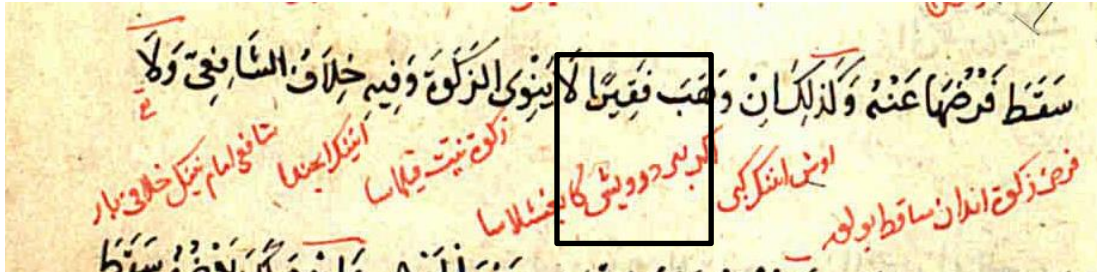 سَقَطَ فَرْضُهَا عَنْهُ وَكَذَلِكَ اِنْ وَهَبَ فَقِيرًا لَا يَنْوِى الزَّكَوةَ وَفِيهِ خِلَافُ الشَّافِعِىّ وَلَا
فرض زكوة اندان ساقط بولور اوش انينك كبى اكر بير درويش كا بغشلاسا زكوة نيت قيلماسا انينك ايچندا شافعى امام نينك خلافى بار